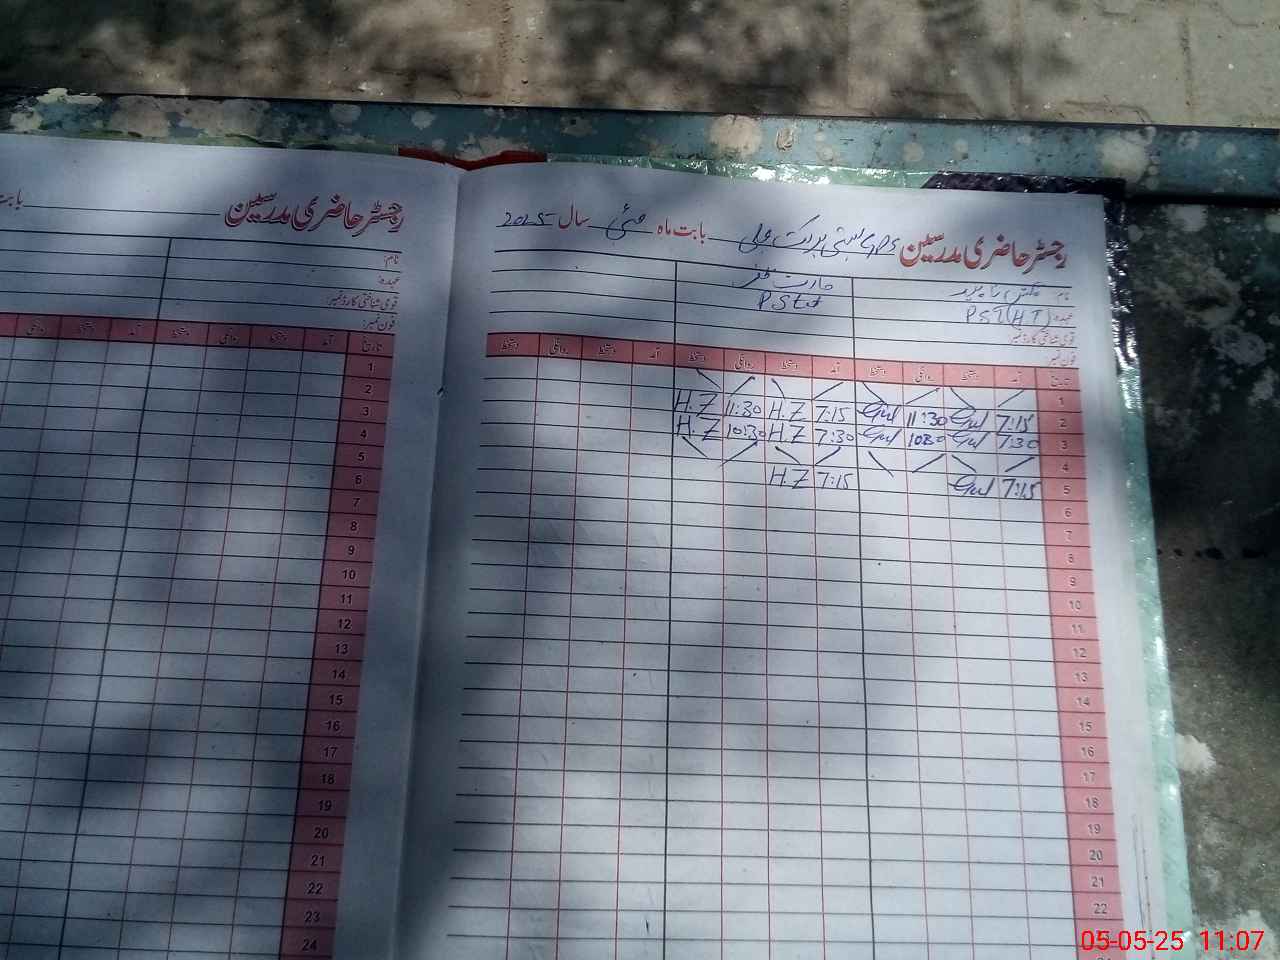 رجسٹر حاضری مدرسین GPS بستی بابت ماہ مئی سال 2025
نام
عہدہ: PST(HT) PST
قومی شناختی کارڈ نمبر:
فون نمبر:
تاریخ آمد دستخط روانگی دستخط آمد دستخط روانگی دستخط آمد دستخط روانگی دستخط
1
2 7:15 Gul 11:30 Gul 7:15 H.Z 11:30 H.Z
3 7:30 Gul 10:30 Gul 7:30 H.Z 10:30 H.Z
4
5 7:15 Gul 7:15 H.Z
6
7
8
9
10
11
12
13
14
15
16
17
18
19
20
21
22
رجسٹر حاضری مدرسین بابت
نام:
عہدہ:
قومی شناختی کارڈ نمبر:
فون نمبر:
تاریخ آمد دستخط روانگی دستخط آمد دستخط روانگی
1
2
3
4
5
6
7
8
9
10
11
12
13
14
15
16
17
18
19
20
21
22
23
24
05-05-25 11:07